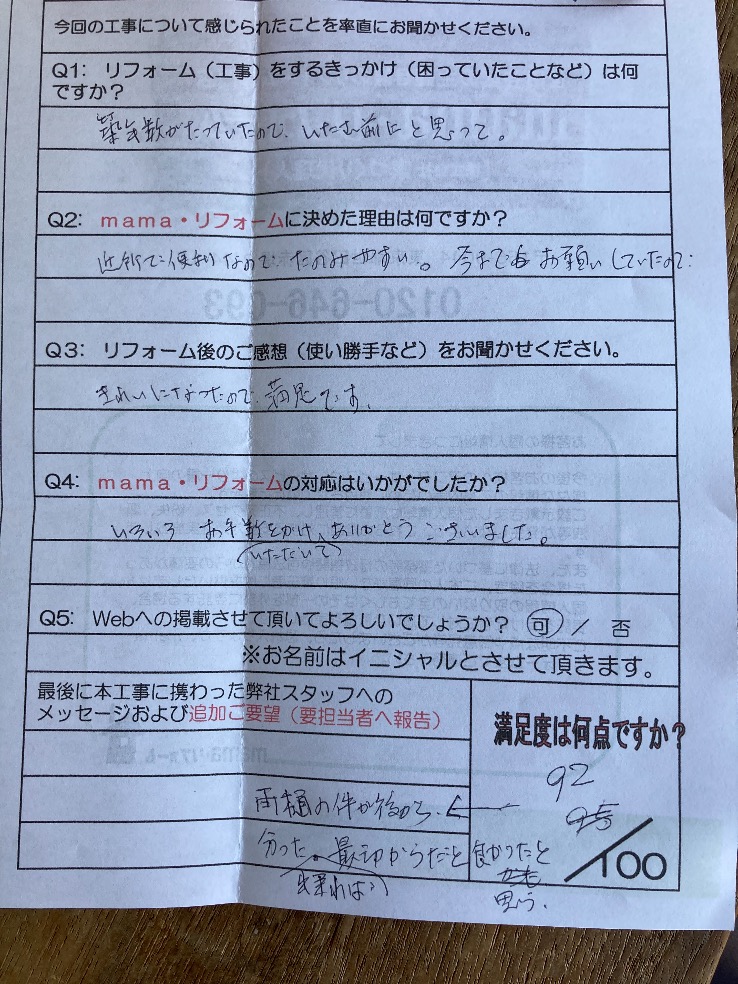 今回の工事について感じられたことを率直にお聞かせください。
Q1: リフォーム（工事）をするきっかけ（困っていたことなど）は何
ですか？
築年数がたっていたので、いたむ前にと思って。
Q2: mama・リフォームに決めた理由は何ですか？
近所で便利なので、たのみやすい。今までもお願いしていたので
Q3: リフォーム後のご感想（使い勝手など）をお聞かせください。
きれいになったので、満足です。
Q4: mama・リフォームの対応はいかがでしたか？
いろいろ お手数をかけ、ありがとうございました。
（いただいて）
Q5: Webへの掲載させて頂いてよろしいでしょうか？ 可 / 否
※お名前はイニシャルとさせて頂きます。
最後に本工事に携わった弊社スタッフへの
メッセージおよび追加ご要望（要担当者へ報告）
満足度は何点ですか？
92
95
/100
雨樋の件が後から、
分った。最初からだと良かったと
出来れば
思う。